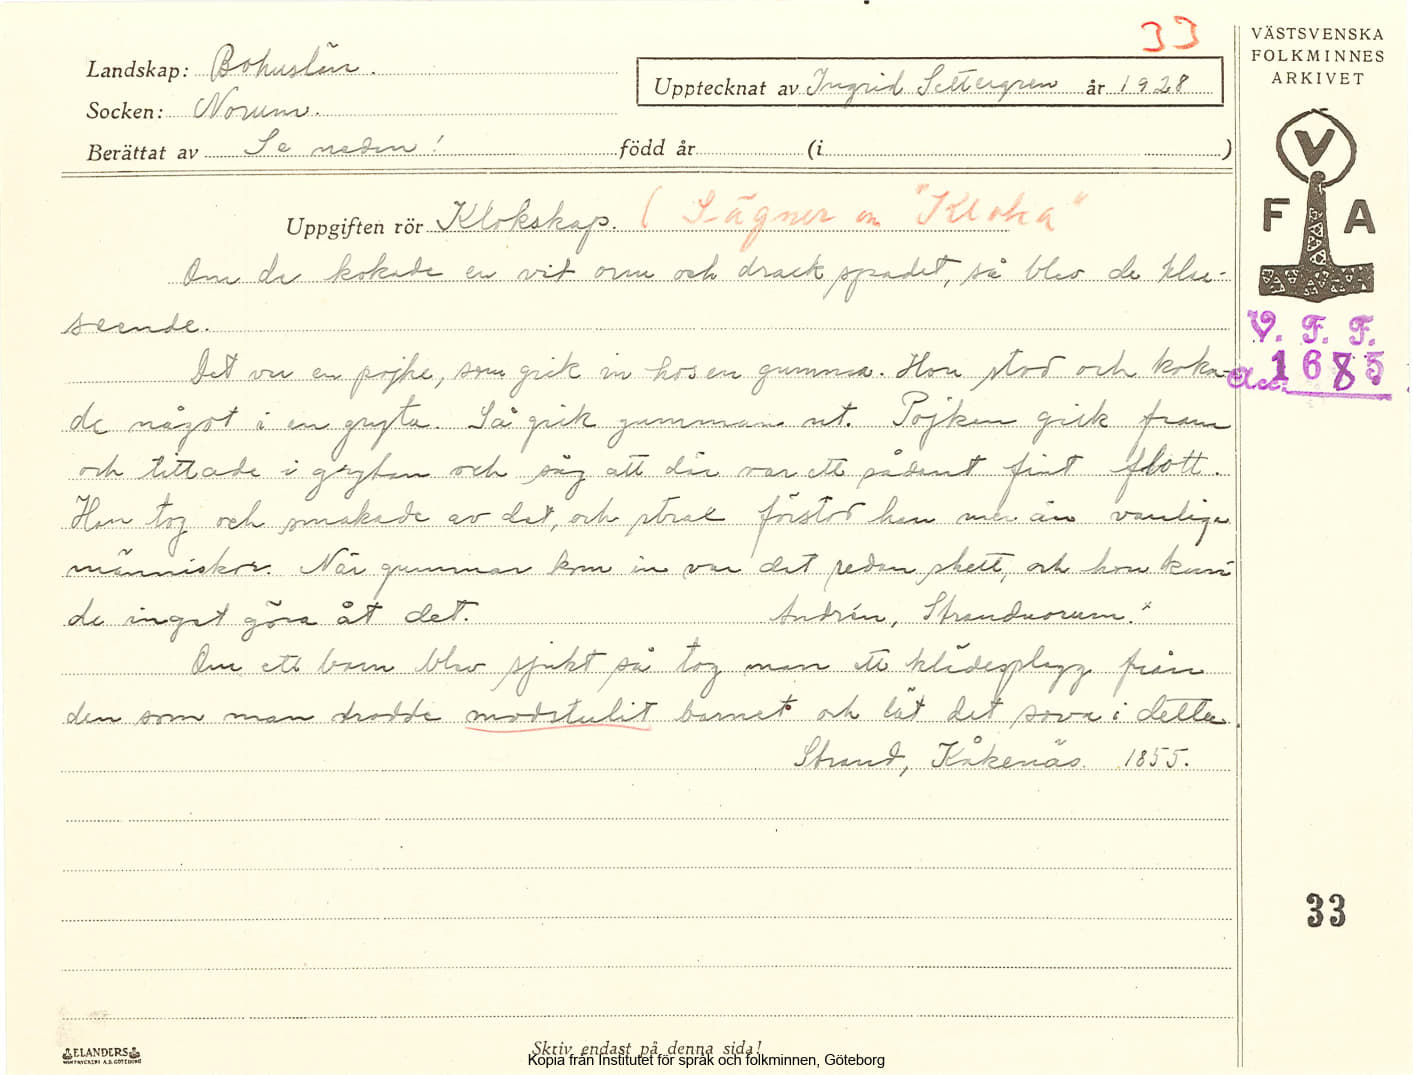 33
VÄSTSVENSKA
FOLKMINNES
ARKIVET
Landskap: Bohuslän.
Upptecknat av Ingrid Settergren år 1928
Socken: Norum.
Berättat av Se nedan! född år (i )
V
F A
Uppgiften rör Klokskap. (Sägner om "Kloka"
Om de kokade en vit orm och drack spadet, så blev de klar-
seende.
V. F. F.
Acc. 1685
Det var en pojke, som gick in hos en gumma. Hon stod och koka-
de något i en gryta. Så gick gumman ut. Pojken gick fram
och tittade i grytan och såg att där var ett sådant fint flott.
Han tog och smakade av det, och strax förstod han mer än vanliga
människor. När gumman kom in var det redan skett, och hon kun-
de inget göra åt det. Andrén, Strandnorum.
Om ett barn blev sjukt så tog man ett klädesplagg från
den som man trodde modstulit barnet och lät det sova i detta.
Strand, Kåkenäs. 1855.
33
ELANDERS
Skriv endast på denna sida!
Kopia från Institutet för språk och folkminnen, Göteborg